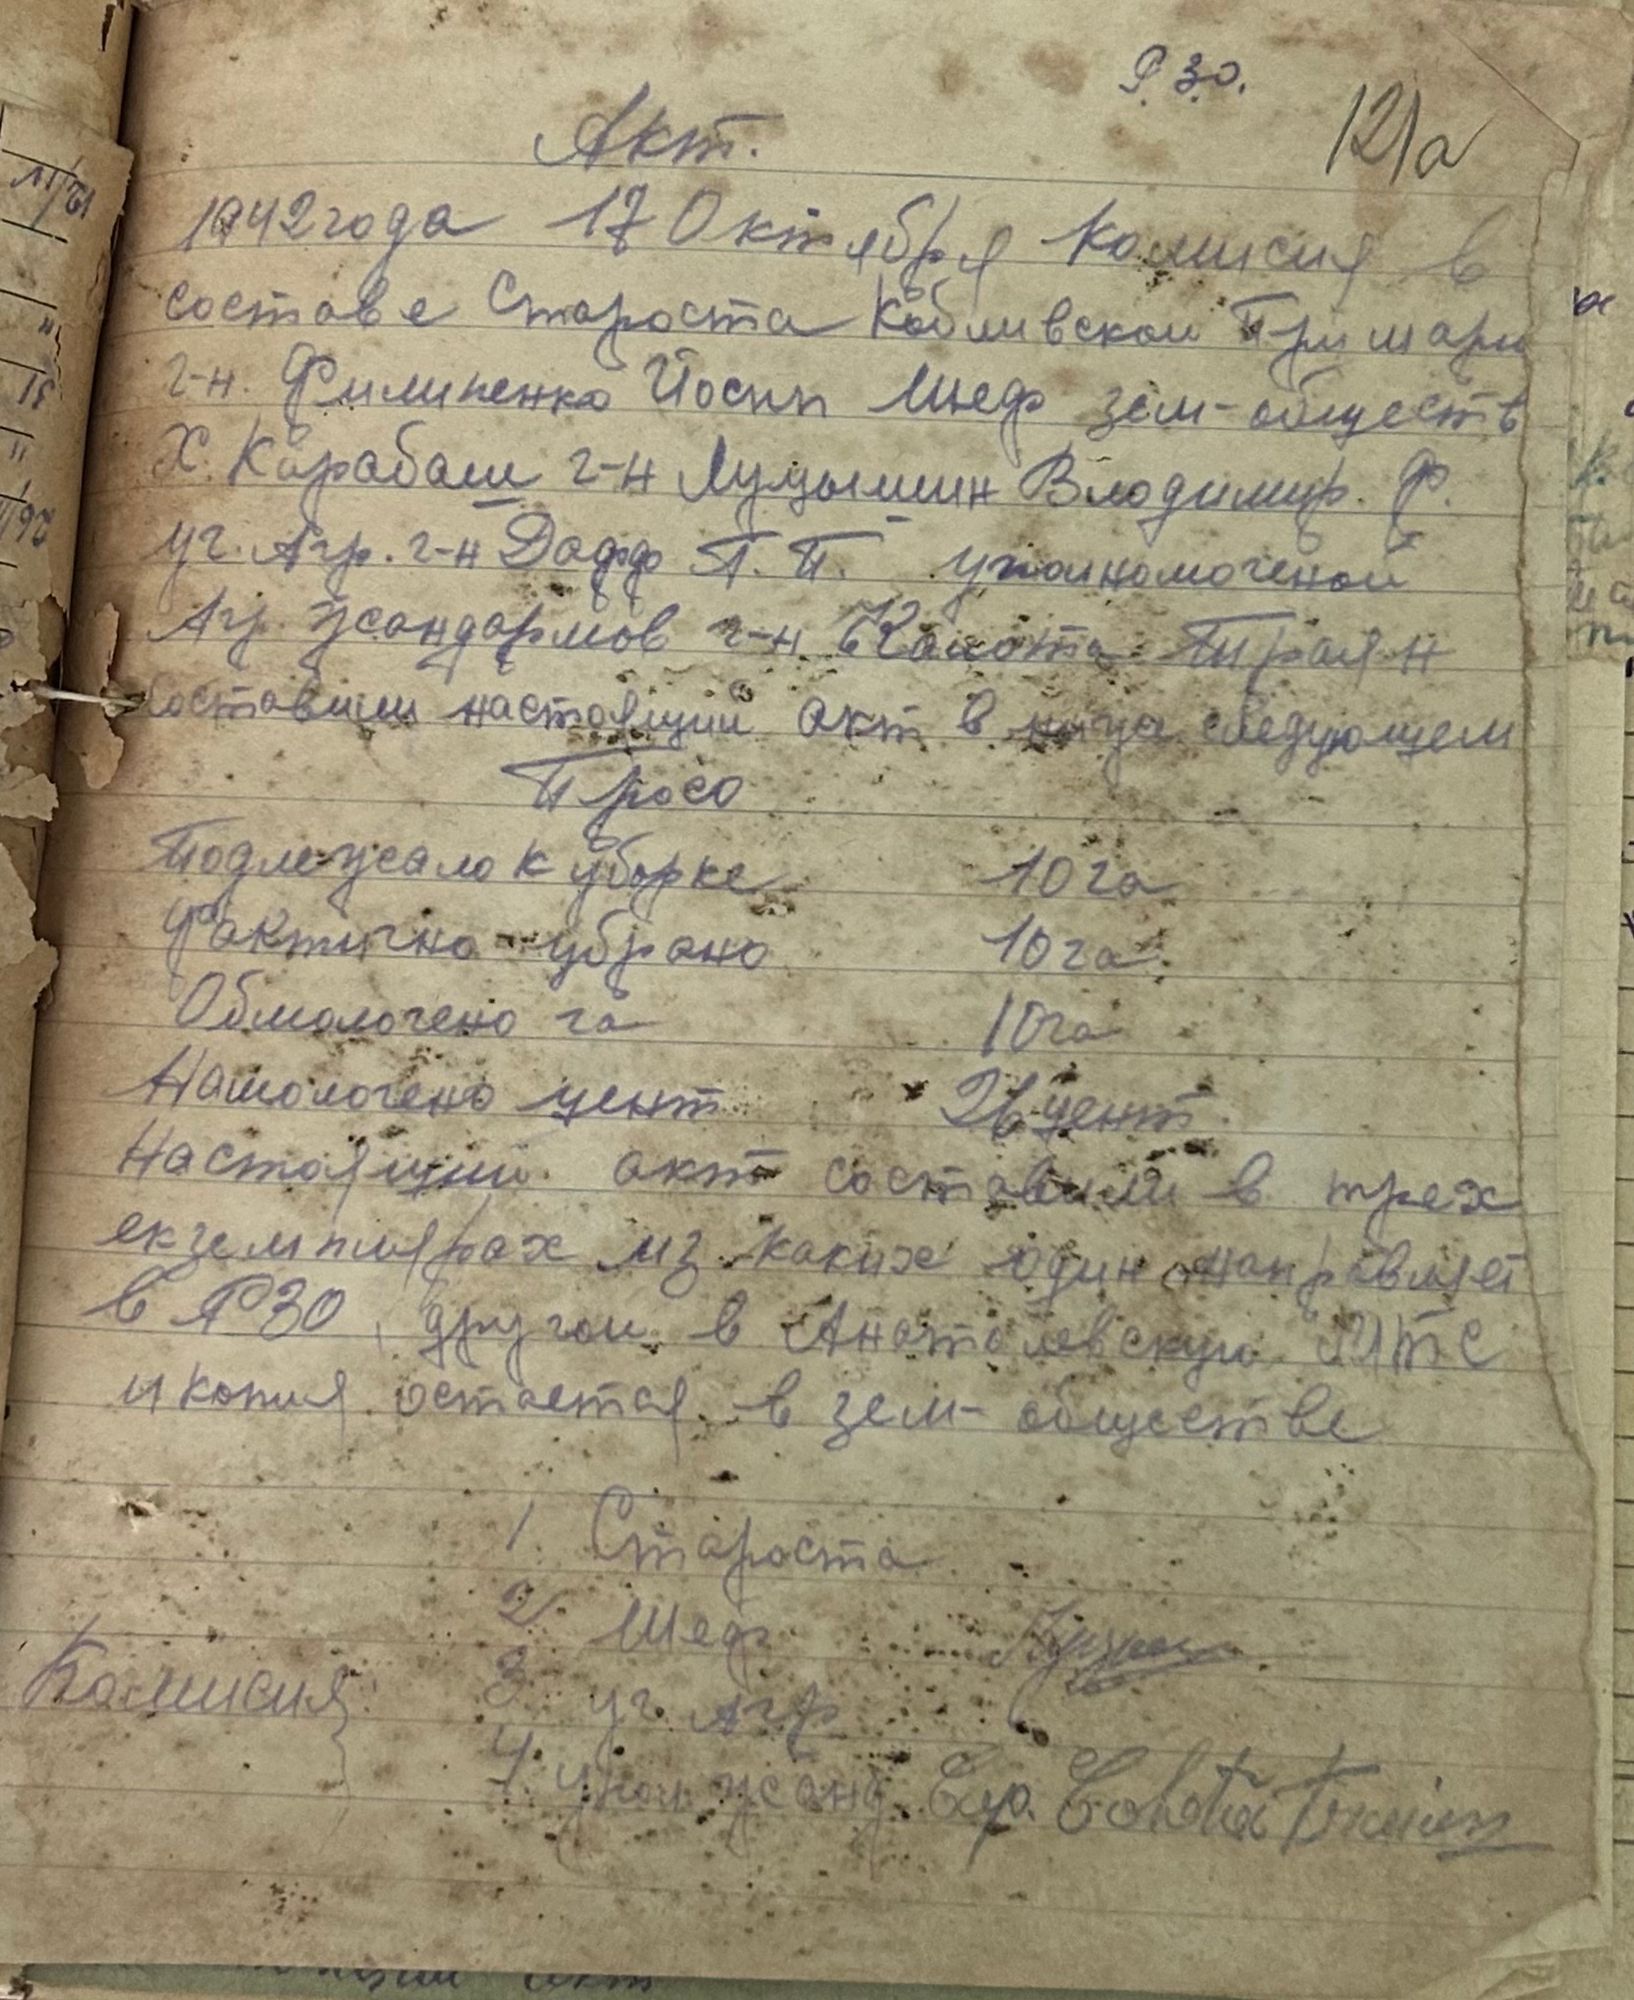 Р.З.О.
121а
Акт.
1942 года 17 Октября Комисия в
составе Староста Кобливской Примари
г-н. Филипенко Йосип Шеф зем-обществ
х. Карабаш г-н Владимир. Ф.
уч. Агр. г-н Дофф П. П. уполномоченой
Агр. жандармов г-н Траян
составили настоящий акт в следующем
Просо
Подлежало к уборке 10 га
Фактично убрано 10 га
Обмолочено га 10 га
Намолочено цент 26 цент.
Настоящий акт составили в трех
екземплярах из каких один направляет
в РЗО, другой в Анатолевскую МТС
и копия остается в зем-обществе
1. Староста
2. Шеф
Комисия 3. уч. Агр
4. упол. жанд